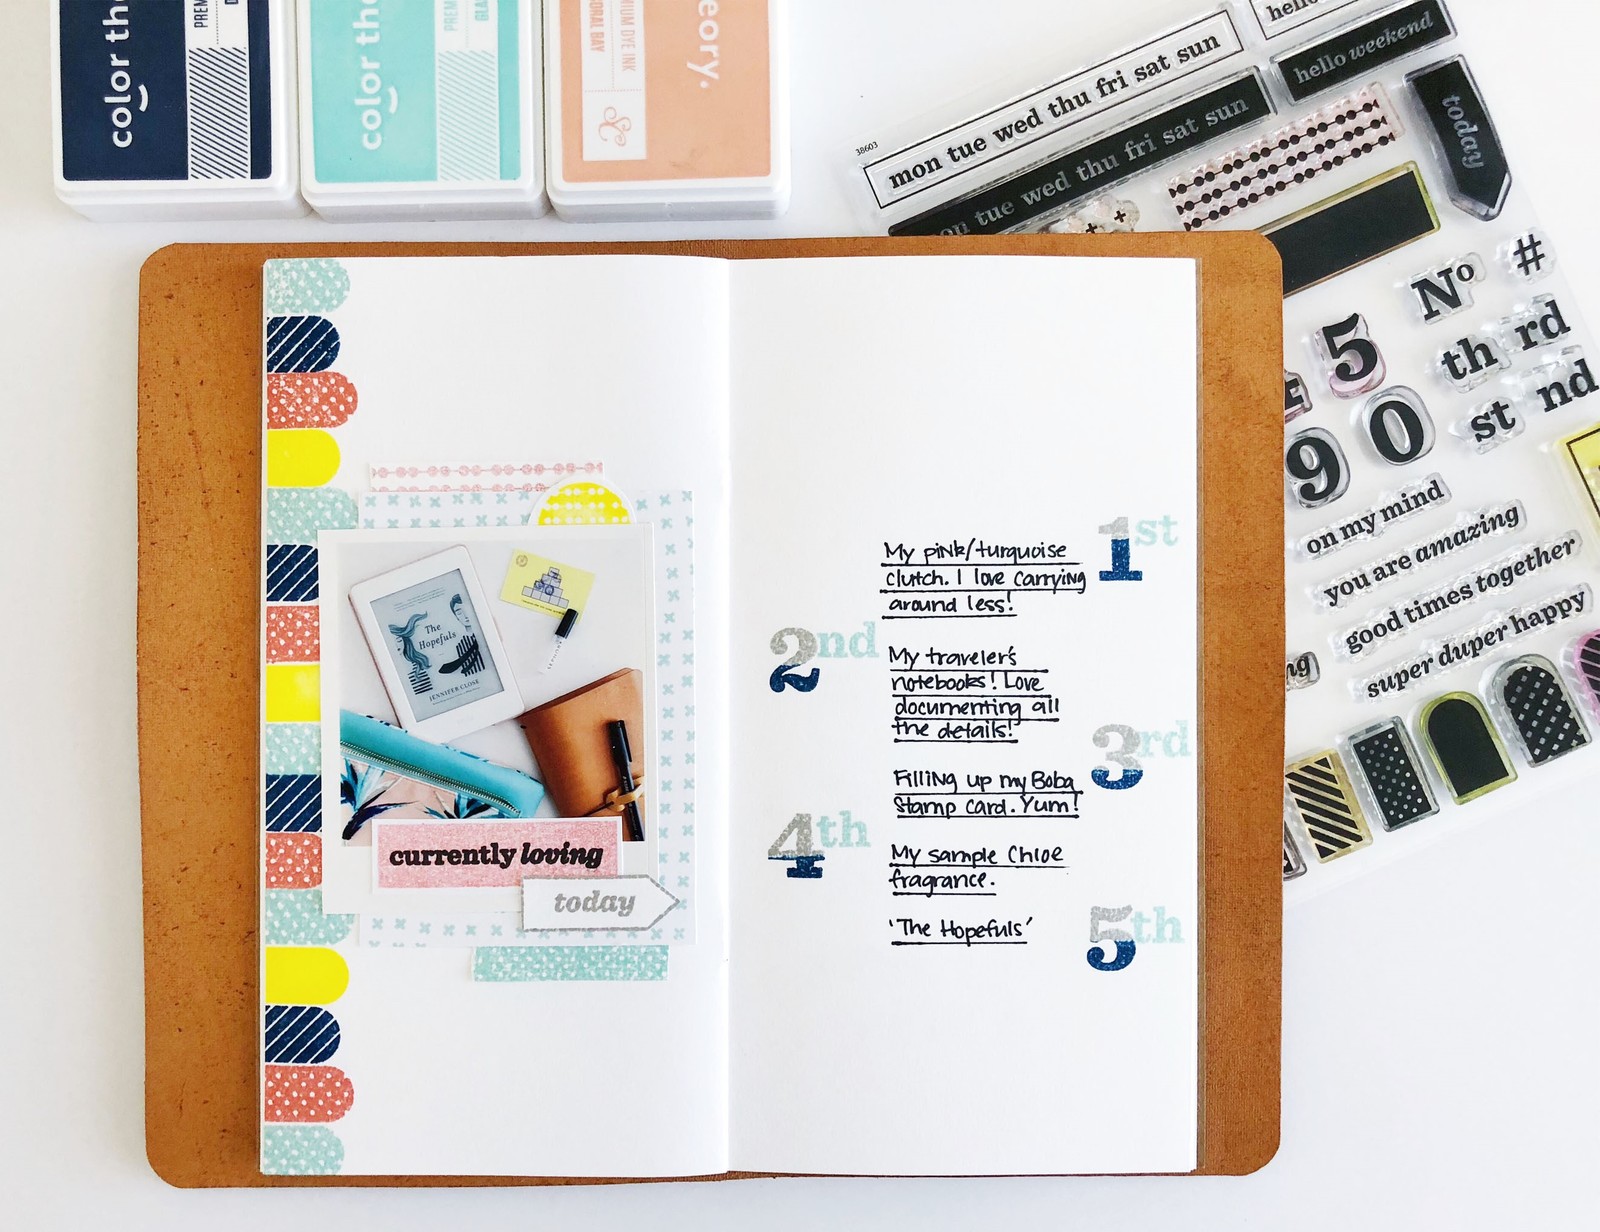 color the
PREM
color the
PREM
eory.
MIUM DYE INK
DRAL BAY
hello
hello weekend
mon tue wed thu fri sat sun
on tue wed thu fri sat sun
today
38603
No #
5 th rd
9 0 st nd
on my mind
you are amazing
good times together
super duper happy
ng
The
Hopefuls
JENNIFER CLOSE
currently loving
today
1st
My pink/turquoise
clutch. I love carrying
around less!
2nd
My traveler's
notebooks! Love
documenting all
the details!
3rd
Filling up my Boba
Stamp card. Yum!
4th
My sample Chloe
fragrance.
5th
'The Hopefuls'